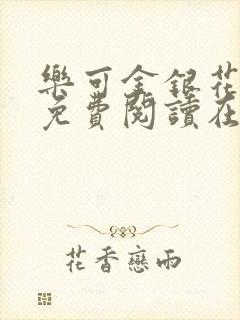 樂可金銀花
免費閱讀在
花香戀雨